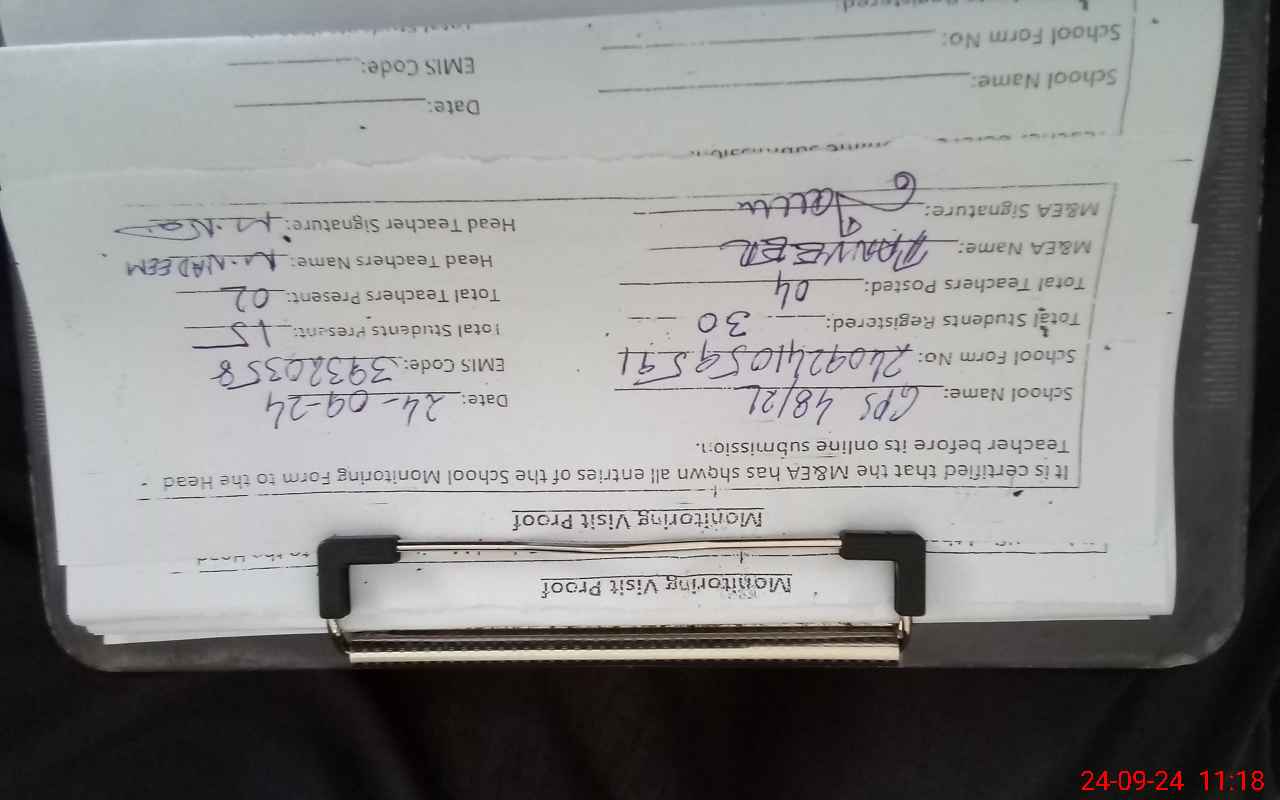 Monitoring Visit Proof
Monitoring Visit Proof
It is certified that the M&EA has shown all entries of the School Monitoring Form to the Head
Teacher before its online submission.
School Name: GPS 48/2L Date: 24-09-24
School Form No: 240924105959 1 EMIS Code: 39320358
Total Students Registered: 30 Total Students Present: 15
Total Teachers Posted: 04 Total Teachers Present: 02
M&EA Name: TANVEER Head Teachers Name: M.NADEEM
M&EA Signature: Head Teacher Signature:
School Name: Date:
School Form No: EMIS Code:
24-09-24 11:18